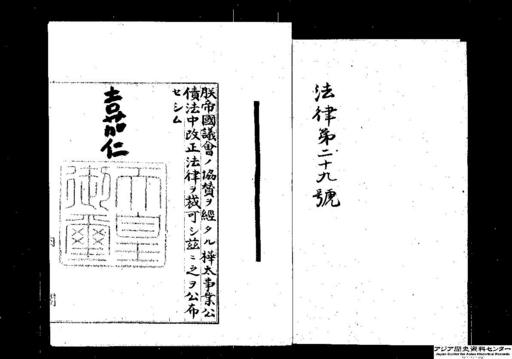 法律第二十九號
朕帝國議會ノ協贊ヲ經タル樺太事業公
債法中改正法律ヲ裁可シ玆ニ之ヲ公布
セシム
嘉仁
天皇
御璽
アジア歴史資料センター
Japan Center for Asian Historical Records